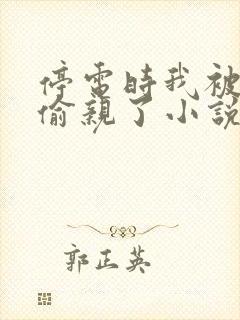 停電時我被
偷親了小説
郭正英